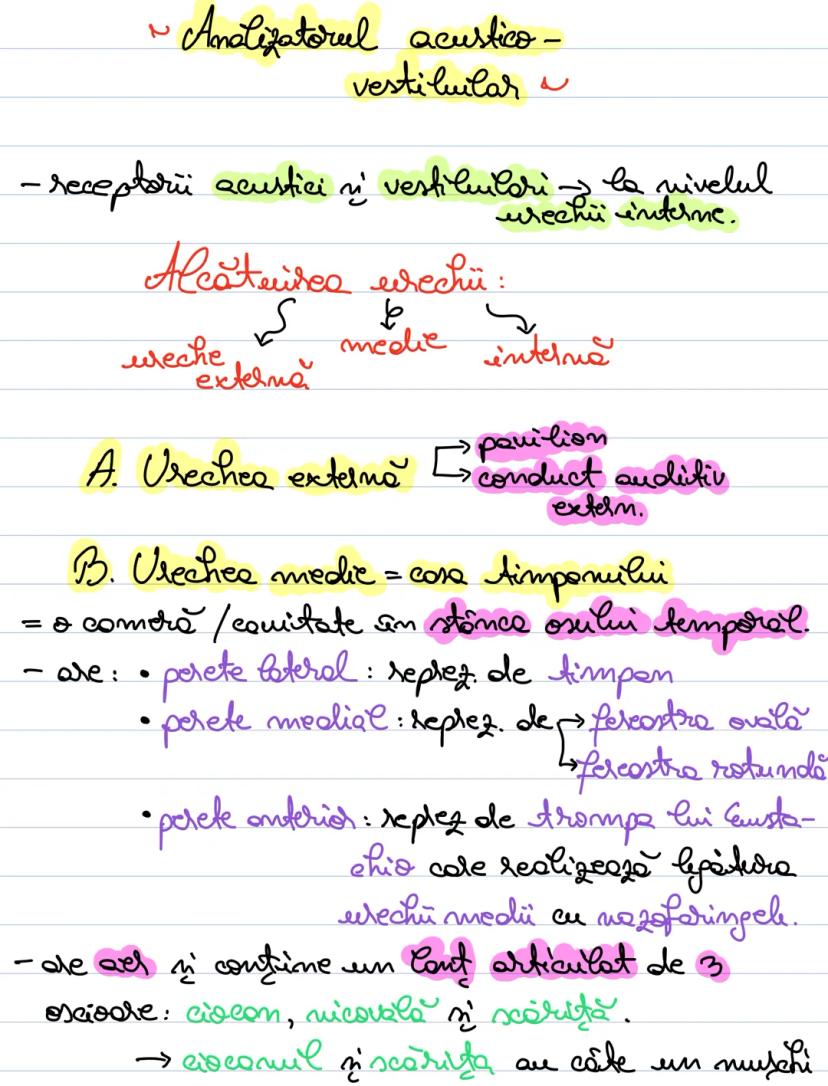 ~ Analizatorul acustico-
vestibular ~
- receptorii acustici și vestibulari → la nivelul
urechii interne.
Alcătuirea urechii:
ureche externă medie internă
A. Urechea externă → pavilion
→ conduct auditiv
extern.
B. Urechea medie = casa timpanului
= o cameră / cavitate în stânca osului temporal.
- are: • perete lateral: reprez. de timpan
• perete medial: reprez. de → fereastra ovală
→ fereastra rotundă
• perete anterior: reprez de trompa lui Eusta-
chio care realizează legătura
urechii medii cu nazofaringele.
- are aer și conține un lanț articulat de 3
oscioare: ciocan, nicovală și scăriță.
→ ciocanul și scărița au câte un mușchi